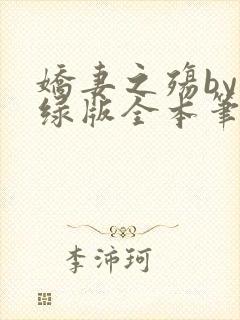 娇妻之殇by
绿版全本筆
李沛珂